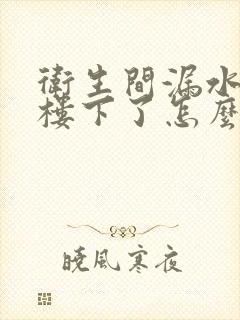 衛生間漏水
樓下了怎麼
曉風寒夜